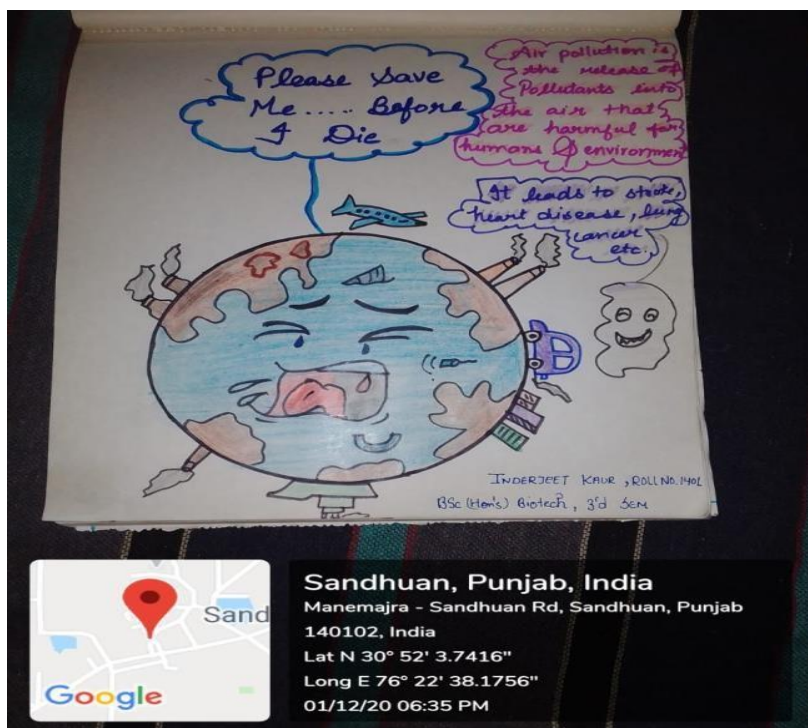 Please save
Me..... Before
I Die
Air pollution is
the release of
Pollutants into
the air that
are harmful for
humans & environmen
It leads to stroke,
heart disease, lung
cancer
etc.
INDERJEET KAUR, ROLL NO. 1401
BSc (Hon's) Biotech, 3'd SEM
Sand
Google
Sandhuan, Punjab, India
Manemajra - Sandhuan Rd, Sandhuan, Punjab
140102, India
Lat N 30° 52' 3.7416"
Long E 76° 22' 38.1756"
01/12/20 06:35 PM